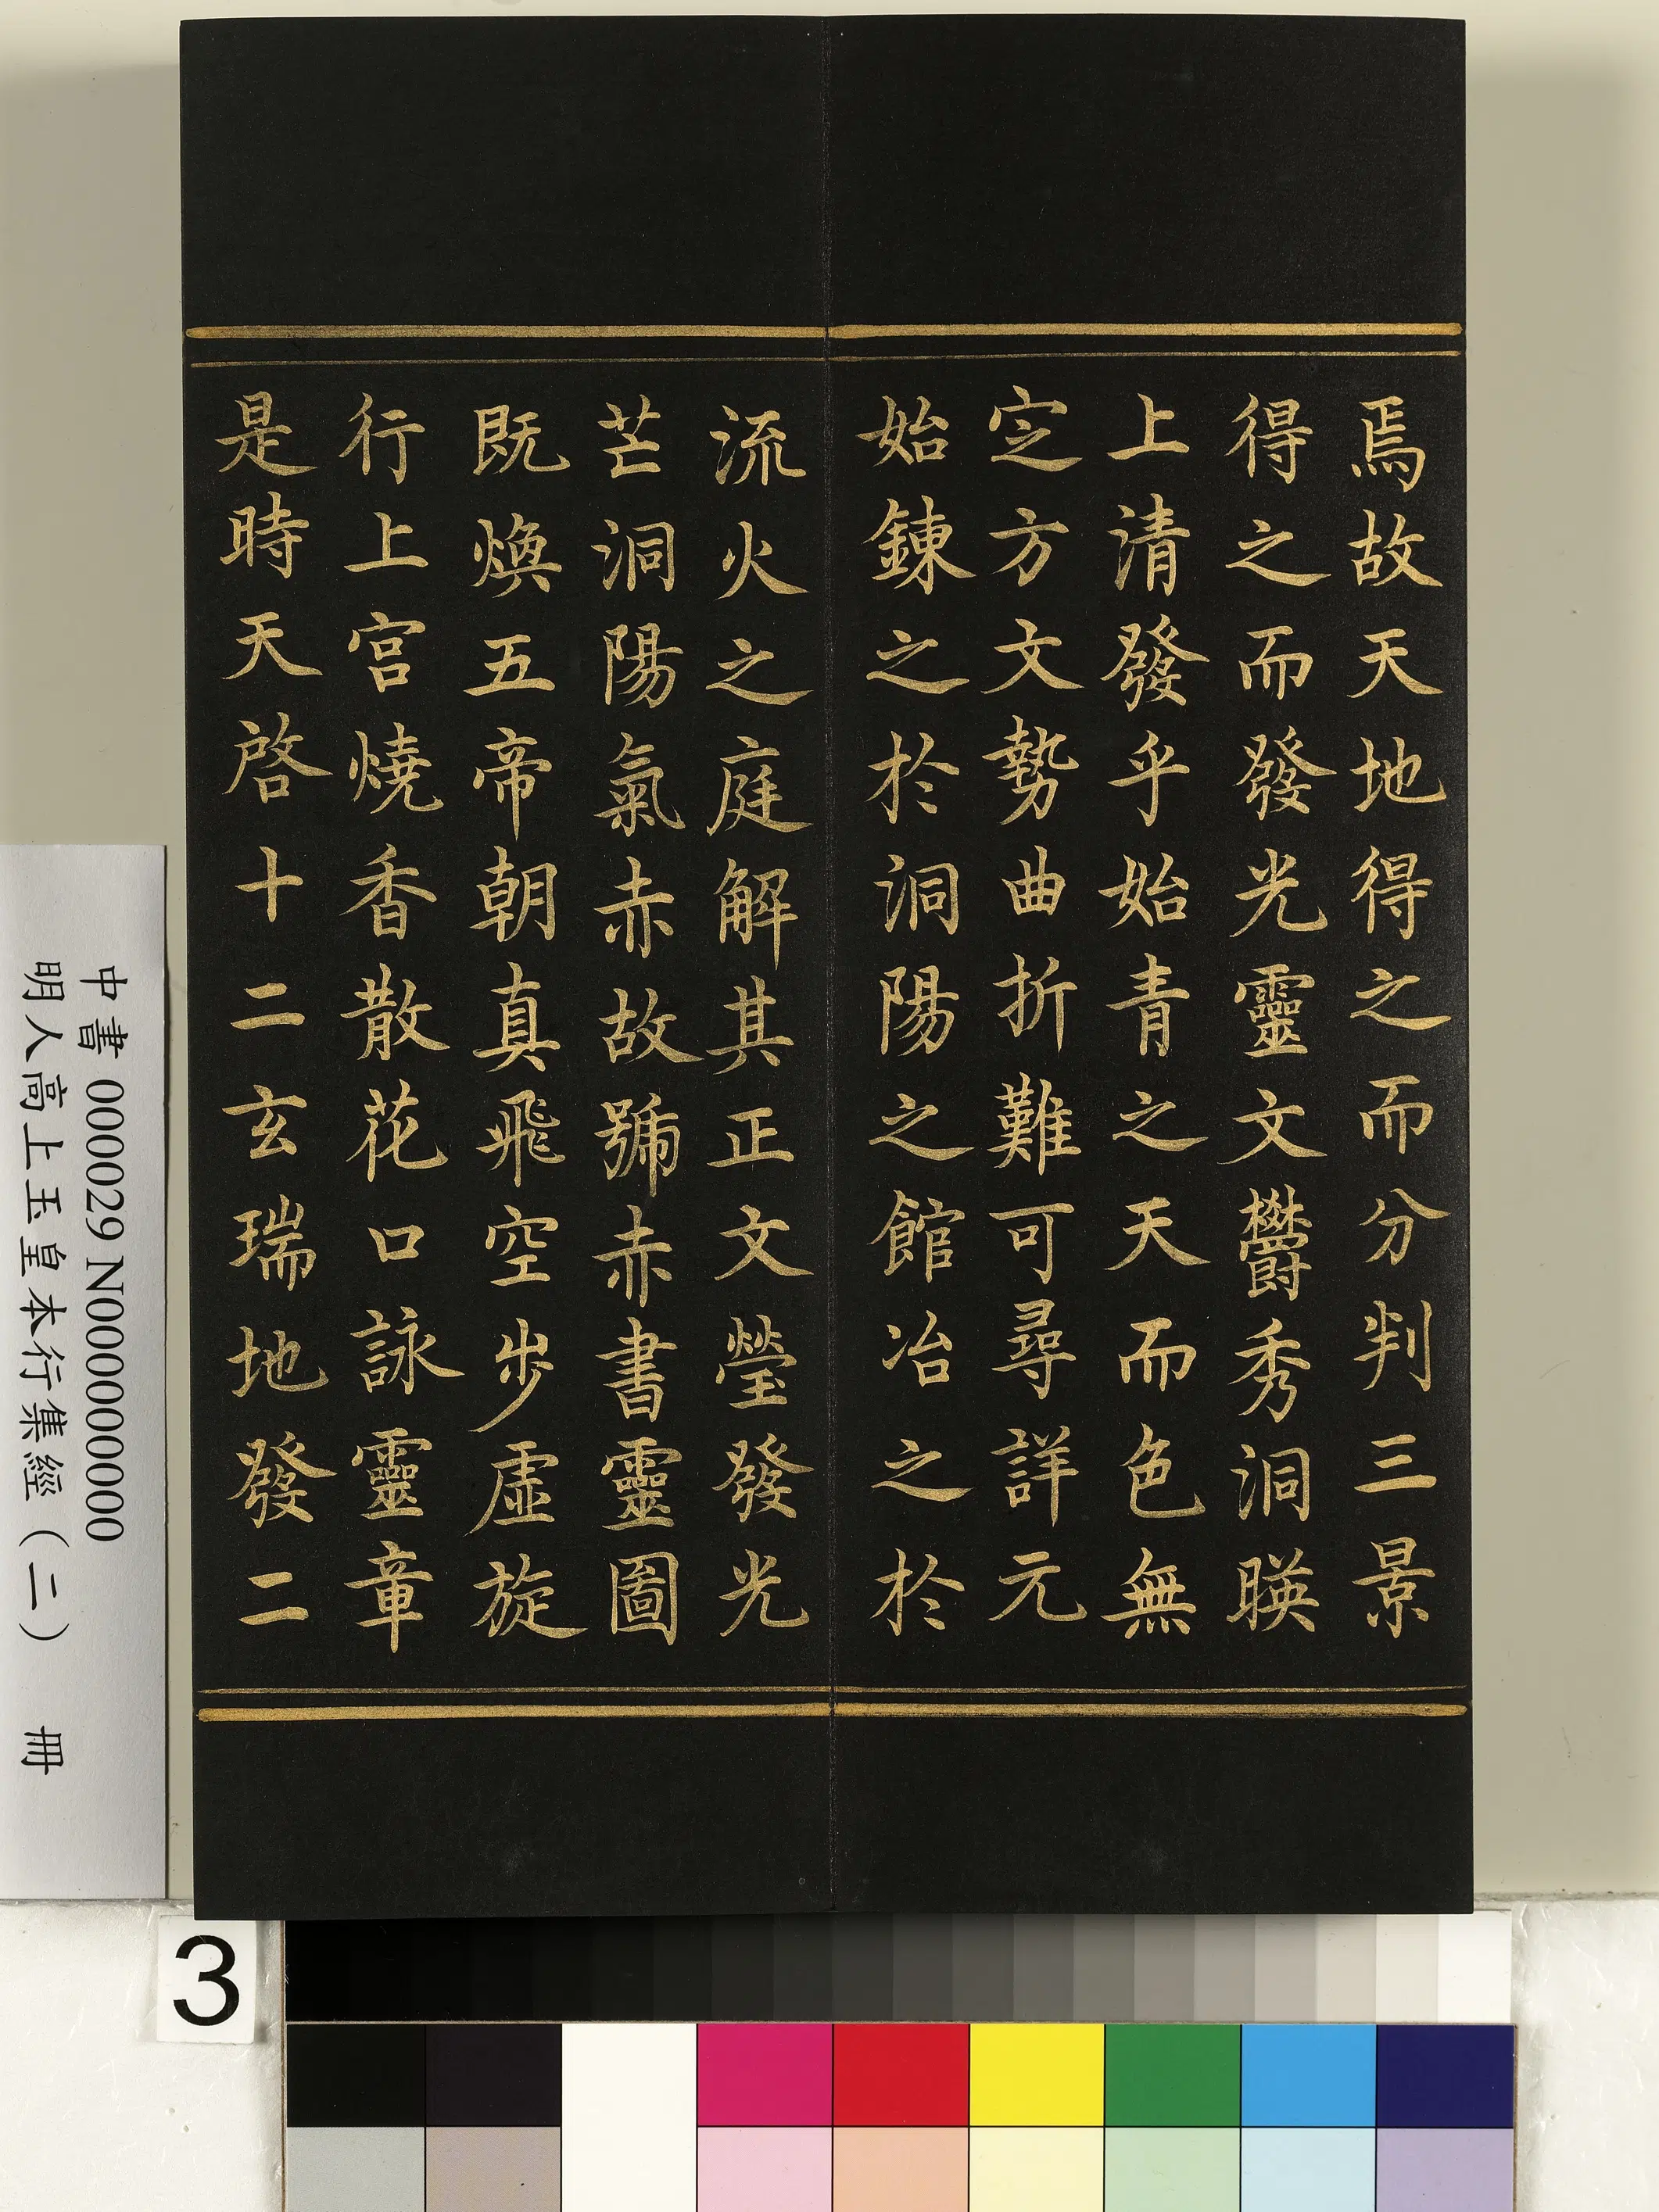 焉故天地得之而分判三景
得之而發光靈文欝秀洞暎
上清發乎始青之天而色無
定方文勢曲折難可尋詳元
始鍊之於洞陽之館冶之於
流火之庭解其正文瑩發光
芒洞陽氣赤故號赤書靈圖
既煥五帝朝真飛空步虛旋
行上宮燒香散花口詠靈章
是時天啓十二玄瑞地發二
中書 000029 N000000000
明人高上玉皇本行集經（二） 冊
3